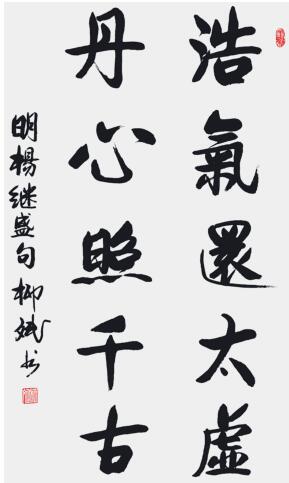 浩氣還太虛
丹心照千古
明楊继盛句 柳斌书